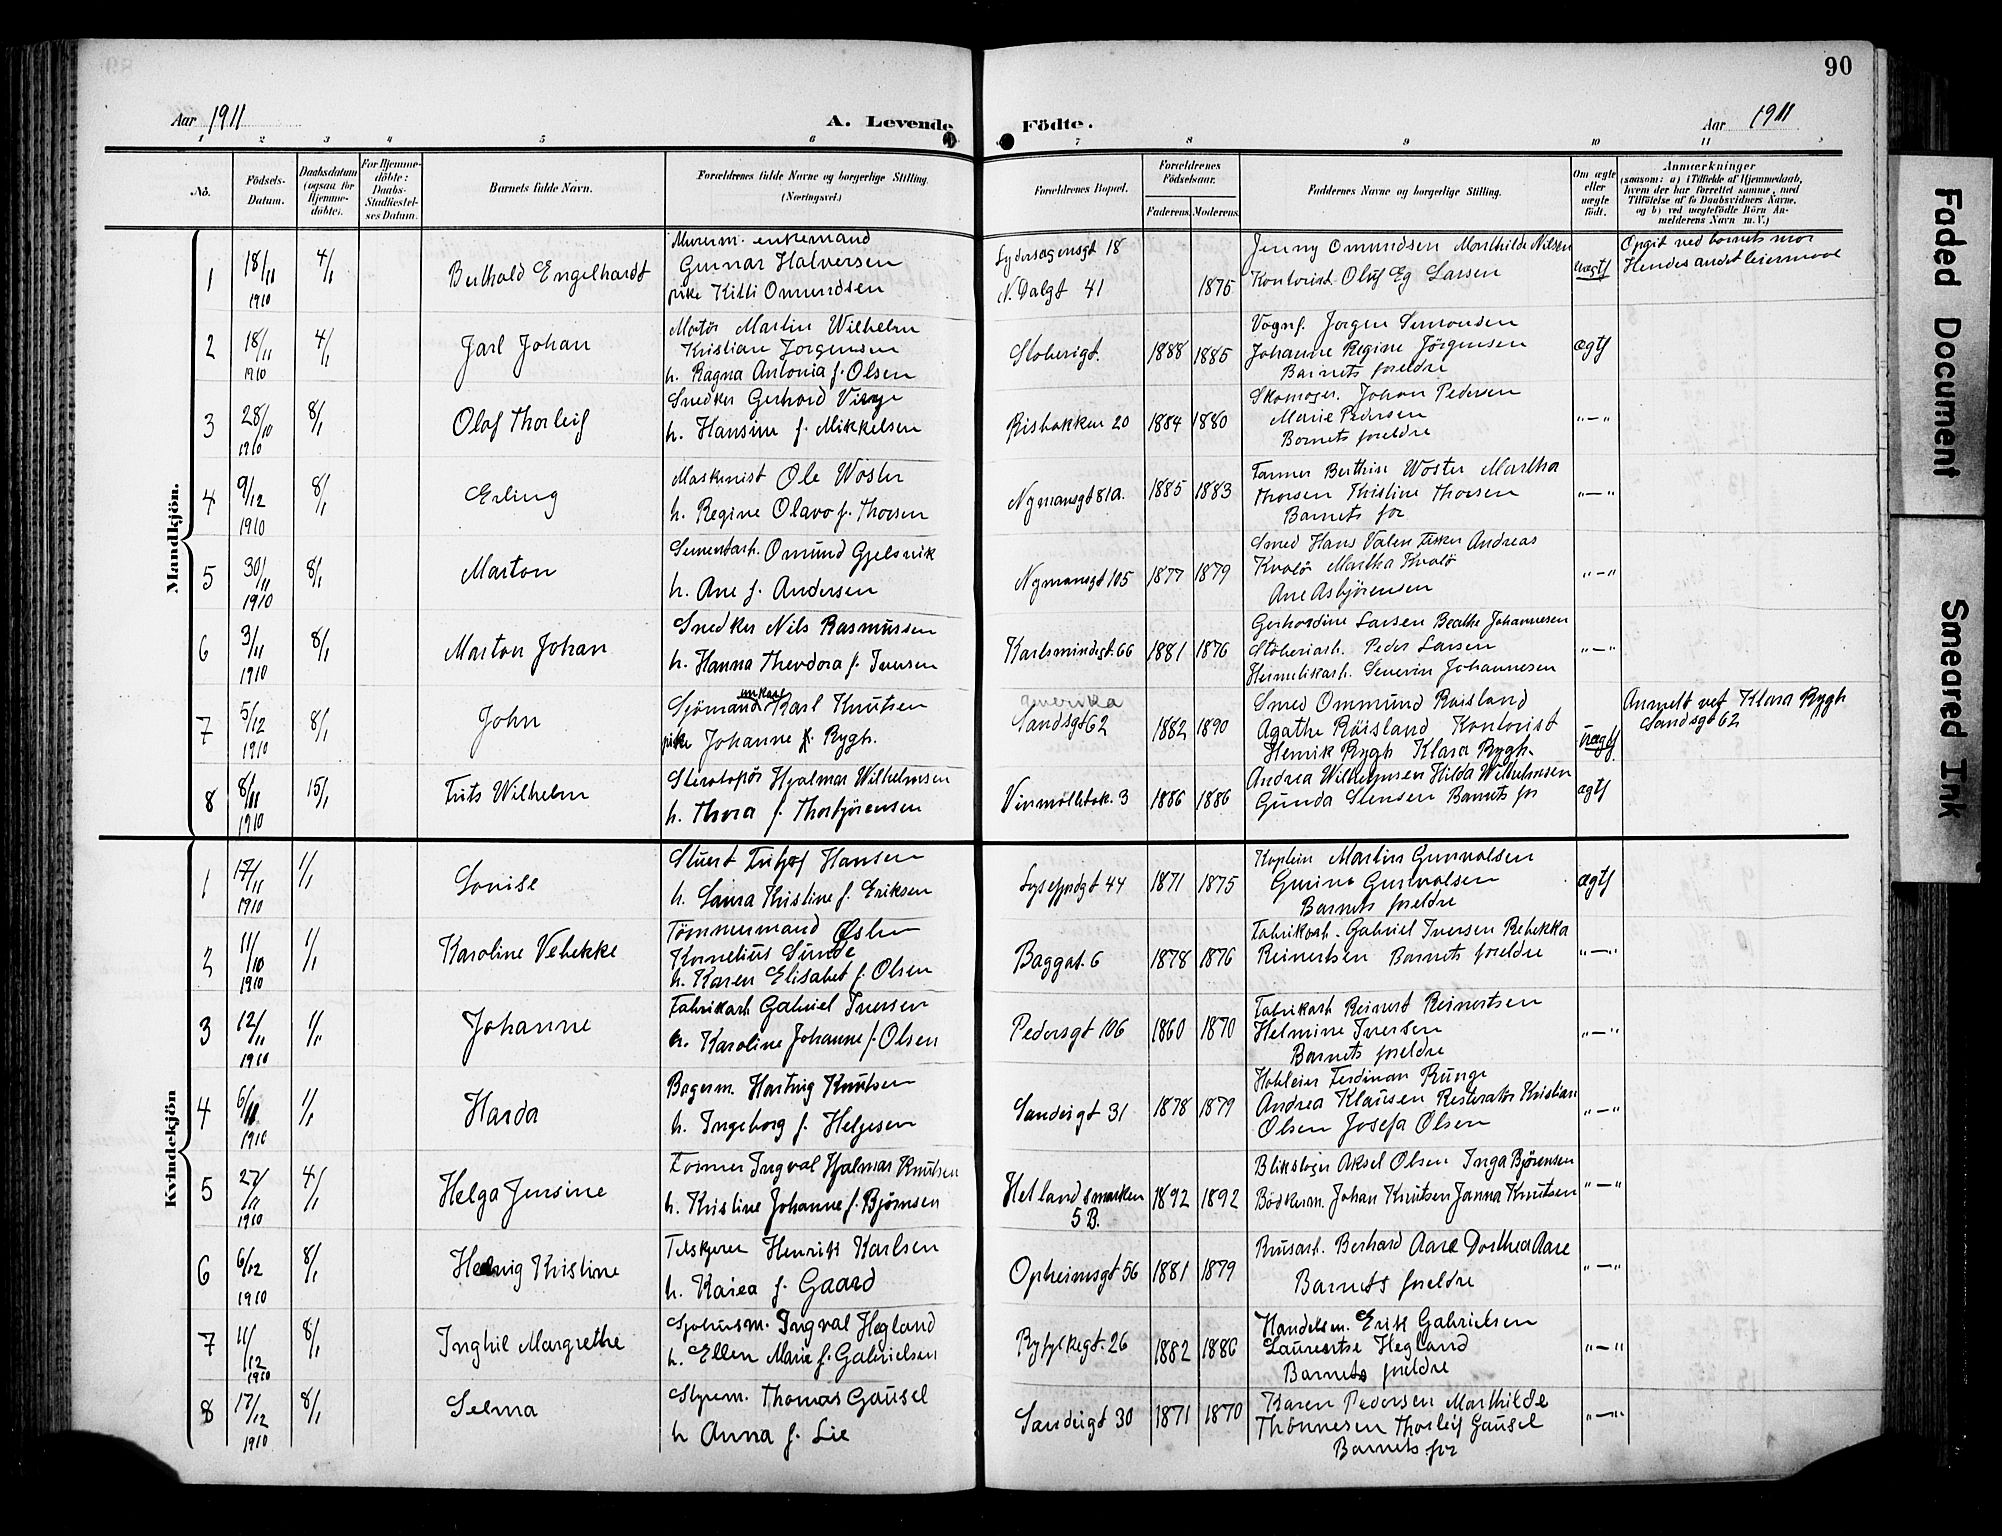 90
Aar 1911
A. Levende Födte.
Aar 1911
1 2 3 4 5 6 7 8 9 10 11
No.
Födsels-Datum.
Daabsdatum (ogsaa for Hjemme-döbte).
For Hjemme-döbte: Daabs-Stadfæstel-ses Datum.
Barnets fulde Navn.
Forældrenes fulde Navne og borgerlige Stilling. (Næringsvei.)
Forældrenes Bopæl.
Forældrenes Födselsaar.
Faderens. Moderens.
Faddernes Navne og borgerlige Stilling.
Om ægte eller uægte födt.
Anmærkninger
(saasom: a) i Tilfælde af Hjemmedaab, hvem der har forrettet samme, med Tilföielse af to Daabsvidners Navne, og b) ved uægtefödte Börn An-melderens Navn m. V.)
Mandkjön.
1 18/11 1910 4/1 Berthold Engelhardt
Murerm. enkemand
Gunnar Halversen
pike Kitti Omundsen
Sydersagensgt 18
N. Dalgt 41 1875
Jenny Omundsen Mathilde Nilsen
Kontorist Oluf Eg Larsen
uægtf
Opgit ved barnets mor
Hendes andet leiermaal
2 18/11 1910 4/1 Jarl Johan
Matös Martin Wilhelm
Kristian Jorgensen
h. Ragna Antonia f. Olsen
Stoberigt. 1888 1885
Vognf. Jorgen Simonsen
Johanne Regine Jörgensen
Barnets foreldre
ægtf
3 28/10 1910 8/1 Olaf Thorleif
Snedker Gerhard Viryi
h. Hansine f. Mikkelsen
Risbakken 20 1884 1880
Skomager. Johan Pedersen
Marie Pedersen
Barnets foreldre
"—"
4 9/12 1910 8/1 Erling
Maskinist Ole Woster
h. Regine Olava f. Thorsen
Nymansgt 81a. 1885 1883
Farmer Berthin Woster Martha
Thorsen Kristine Thorsen
Barnets for
"—"
5 30/11 1910 8/1 Marton
Sementarb. Omund Gjelsvik
h. Ane f. Andersen
Nymansgt 105 1877 1879
Smed Hans Valen Fisker Andreas
Kvalö Martha Kvalö
Ane Asbjörensen
"—"
6 3/11 1910 8/1 Marton Johan
Snedker Nils Rasmussen
h. Hanna Theodora f. Iversen
Karlsmindegt. 66 1881 1876
Gerhardine Larsen Beathe Johannesen
Stoberiarb. Peder Larsen
Hermetikarb. Severin Johannesen
"—"
7 5/12 1910 8/1 John
unkarl
Sjömand Karl Knutsen
pike Johanne f. Rygh.
amerika
Sandsgt 62 1882 1890
Smed Ommund Raisland
Agathe Raisland Kontorist
Henrik Rygh Klara Rygh.
uægtf
Anmeldt vef Klara Rygh
Sandsgt 62
8 8/11 1910 15/1 Frits Wilhelm
Sterotopör Hjalmar Wilhelmsen
h. Thora f. Thorbjörensen
Vinmöllebak. 3 1886 1886
Andrea Wilhelmsen Hilda Wilhelmsen
Gunda Stensen Barnets for
ægtf
Kvindekjön
1 17/11 1910 1/1 Lovise
Stuert Fritjof Hansen
h. Laura Kristine f. Eriksen
Lysefjordgt 44 1871 1875
Kaptein Martin Gunnalsen
Gurine Gunnalsen
Barnets foreldre
ægtf
2 11/10 1910 1/1 Karoline Vebekke
Tömmermand Osten
Kornelius Sunde
h. Karen Elisabet f. Olsen
Baggat. 6 1878 1876
Fabrikarb. Gabriel Iversen Rebekka
Reinertsen Barnets foreldre
"—"
3 12/11 1910 1/1 Johanne
Fabrikarb Gabriel Iversen
h. Karoline Johanne f. Olsen
Pedersgt 106 1860 1870
Fabrikarb Reinert Reinertsen
Helmine Iversen
Barnets foreldre
"—"
4 6/11 1910 1/1 Harda
Bagerm. Hartvig Knutsen
h. Ingeborg f. Helgesen
Sandeigt 31 1878 1879
Hobleier Ferdinan Runge
Andrea Klausen Resterator Kristian
Olsen Josefa Olsen
"—"
5 27/11 1910 4/1 Helga Jensine
Former Ingval Hjalmar Knutsen
h. Kristine Johanne f. Björnsen
Hetlandsmarken 5 B. 1892 1892
Blikslager Aksel Olsen Inga Björensen
Bödkerm. Johan Knutsen Janna Knutsen
"—"
6 6/12 1910 8/1 Hedvig Kristine
Tilskjerer Henrik Karlsen
h. Kaisa f. Gaard
Opheimsgt 56 1881 1879
Brusarb. Berhard Aare Dorthea Aare
Barnets foreldre
"—"
7 11/12 1910 8/1 Inghil Margrethe
Sjohusm. Ingval Hegland
h. Ellen Marie f. Gabrielsen
Ryfylkegt. 26 1882 1886
Handelsm. Erik Gabrielsen
Laurentse Hegland
Barnets foreldre
"—"
8 17/12 1910 8/1 Selma
Styrem. Thomas Gausel
h Anna f. Lie
Sandeigt 30 1871 1870
Karen Pedersen Mathilde
Thönnesen Thorleif Gausel
Barnets for
"—"
Faded Document
Smeared Ink